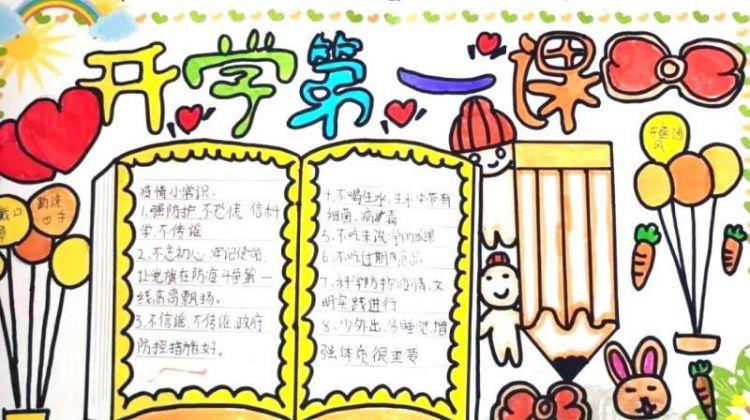 开学第一课
戴口
勤洗
手
开窗通
风
疫情小常识：
1.强防护,不恐慌,信科
学,不传谣
2.不忘初心,牢记使命,
让党旗在防疫斗争第一
线高高飘扬。
3.不信谣,不传谣,政府
防控措施好。
4.不喝生水,生水中带有
细菌,病毒
5.不吃未洗的瓜果
6.不吃过期食品
7.科学防控疫情,文
明实践进行
8.少外出,多睡觉,增
强体质很重要